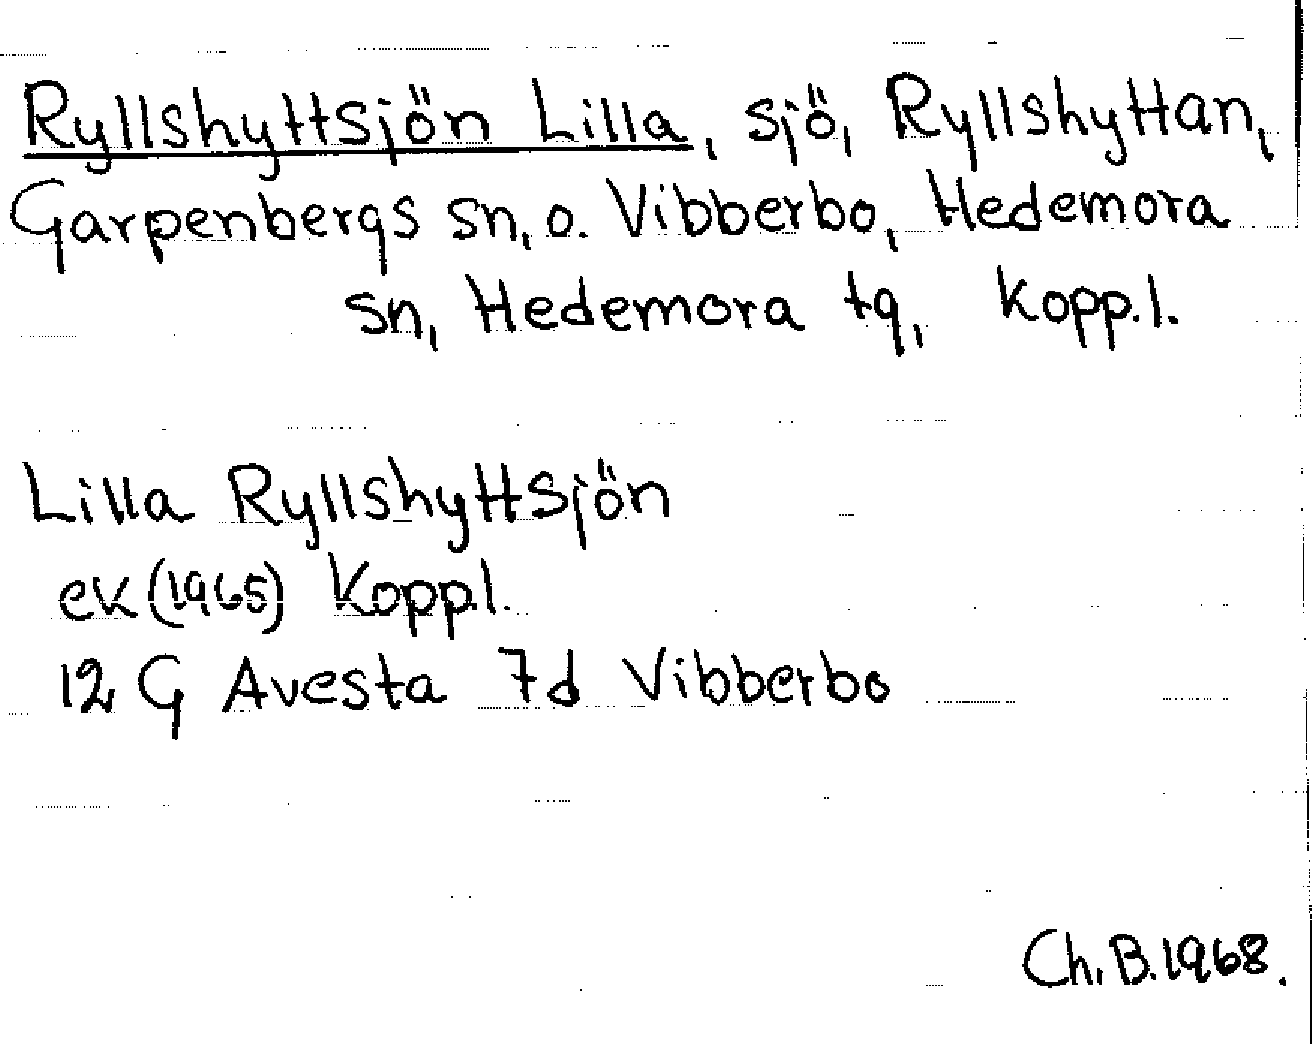 Ryllshyttsjön Lilla, sjö, Ryllshyttan,
Garpenbergs sn, o. Vibberbo, Hedemora
sn, Hedemora tg, Kopp.l.
Lilla Ryllshyttsjön
ek (1965) Kopp.l.
12 G Avesta 7d Vibberbo
Ch. B. 1968.